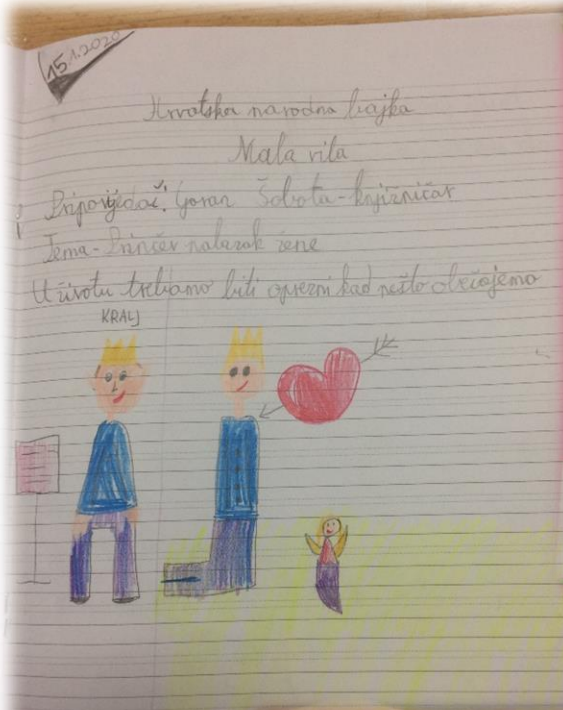 15.1.2020
Hrvatska narodna bajka
Mala vila
Pripovjedač: Goran Šobota-knjižničar
Tema-Prinčev nalazak žene
U životu trebamo biti oprezni kad nešto obećajemo
KRALJ